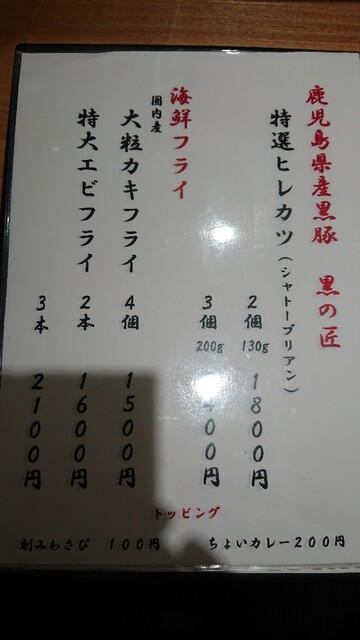 鹿児島県産黒豚 黒の匠
特選ヒレカツ(シャトーブリアン)
2個 130g 1800円
3個 200g 400円
海鮮フライ
国内産
大粒カキフライ 4個 1500円
特大エビフライ 2本 1600円
3本 2100円
トッピング
刻みわさび 100円
ちょいカレー200円